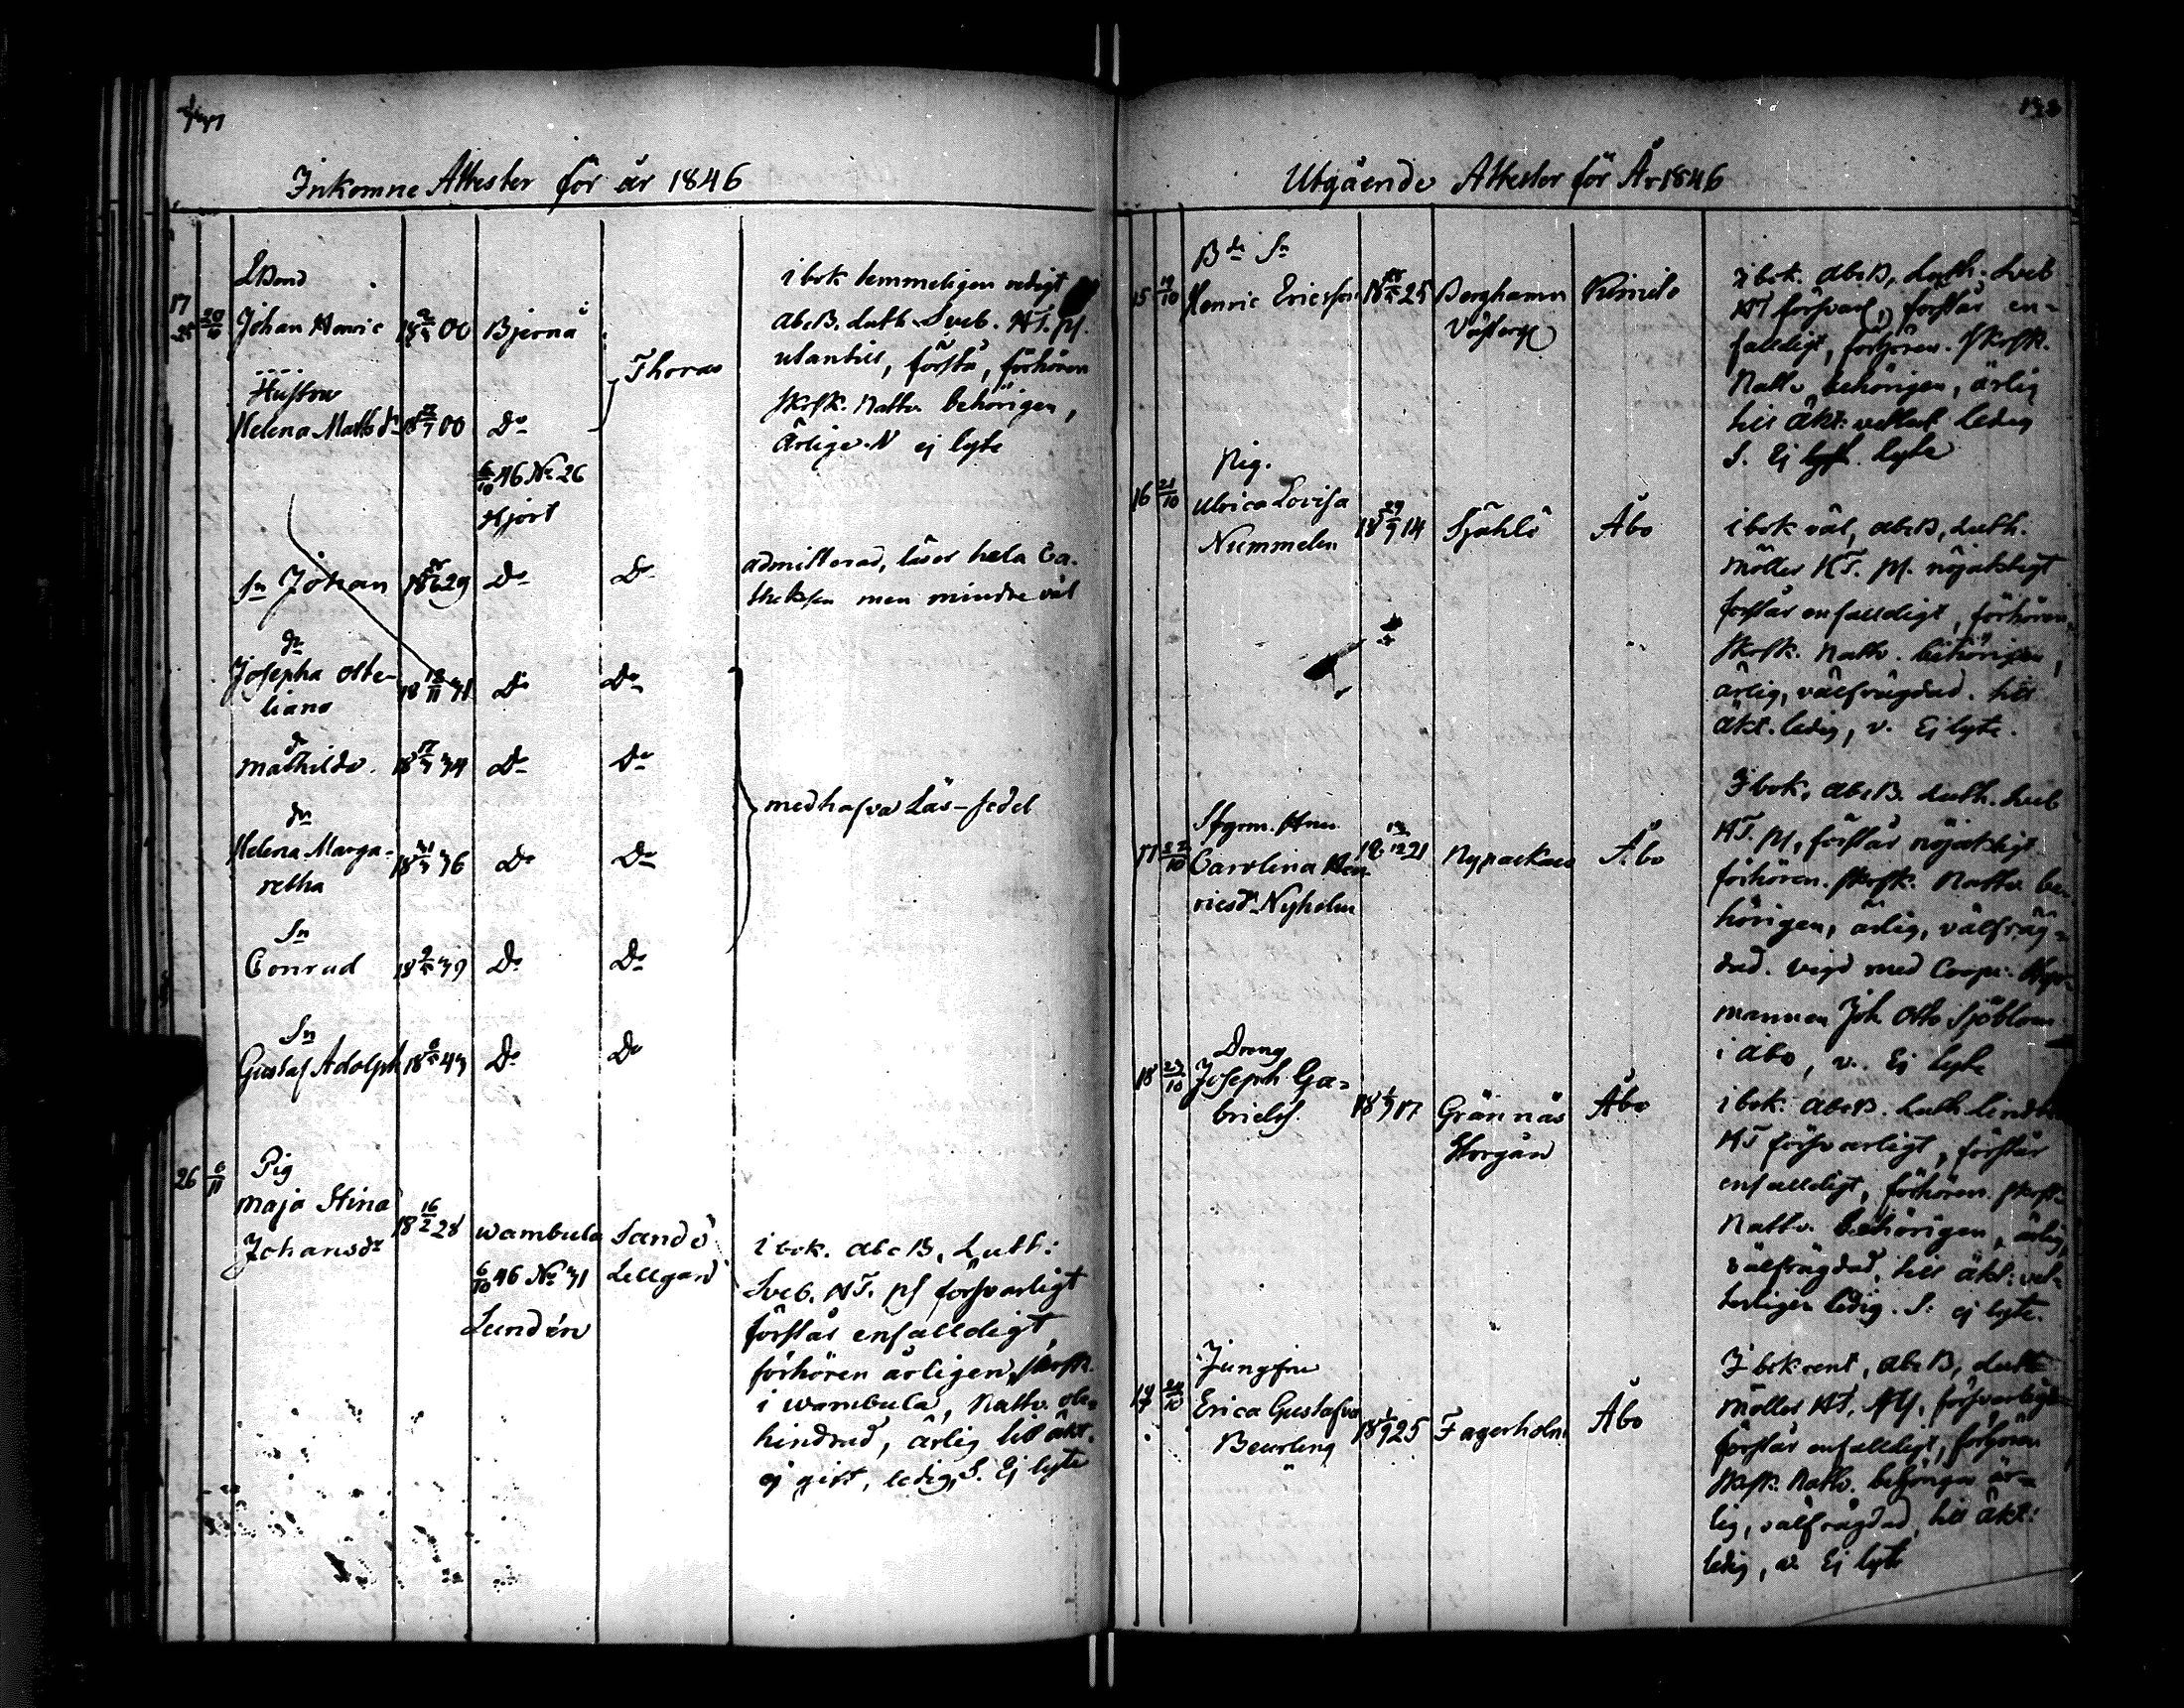 Inkomne Attester för år 1846
LBond
17 20/10 Johan Henric 18 00 Bjernå
25
Thoras
i bok temmeligen redigt
abcB. Luth. Sveb. HT. pf.
utantill, förstå, förhören
skrsk. Nattv. behörigen,
Ärlige. N ej lyte
Hustru
Helena Mattsdr 18 00 Do
6/10 46 No 26
Hjort
Sn Johan 18 29 Do Do
admitterad, läser hela Ca-
theksen men mindre väl
dr
Josepha Otte-
liana 18 12/11 31 Do Do
dr
Mathilda 18 17/3 34 Do Do
medhafva Läs-sedel
dr
Helena Marga-
retha 18 36 Do Do
Sn
Conrad 18 9/5 39 Do Do
Sn
Gustaf Adolph 18 43 Do Do
26 6/11 Pig
Maja Stina
Johansdr 18 16/2 28 Wambula Sandö
6/10 46 No 31 Lellgård
Lundén
i bok. abcB, Luth:
Sveb. HT. pf försvarligt
förstår enfalldigt,
förhören årligen, skrsk.
i Wambula, Nattv. obe-
hindrad, ärlig till äkt.
ej gift, ledig, S. Ej lyte
Utgående Attester för År 1846
Bde Sn
15 19/10 Henric Ericsson 18 25 Berghamn Kimito
I bok. abcB, Luth. Sveb
HT försvarl, förstår en-
falldigt, förhören. skrsk.
Nattv. behörigen, ärlig
till äkt: vetterl ledig
S. Ej lyte
Pig.
16 21/10 Ulrica Lovisa
Nummelin 18 29/9 14 Sjählö Åbo
i bok väl, abcB, Luth.
Möller HT. pf. nöjaktigt
förstår enfalldigt, förhören,
skrsk. Nattv. behörigen,
ärlig, välfrägdad. till
äkt. ledig, v. Ej lyte.
17 22/10 Carolina Hen-
ricsdr Nyholm 18 21 Nypackas Åbo
I bok, abcB. Luth. Sveb
HT. pf, förstår nöjaktigt
förhören. skrsk. Nattv. be-
hörigen, ärlig, välfräg-
dad. vigd med
mannen Joh Otto Sjöblom
i Åbo, v. Ej lyte
Dreng
18 23/10 Joseph Ga-
brielss. 18 17 Grännäs Åbo
Storgård
i bok. abcB. Luth
HT försvarligt, förstår
enfalldigt, förhören. skrsk.
Nattv. behörigen, ärlig,
välfrägdad, till äkt: vet-
terligen ledig. S: ej lyte.
Jungfru
19 24/10 Erica Gustafva
Beurling 18 25 Fagerholm Åbo
I bok rent, abcB, Luth
Möller HT, försvarligt
förstår enfalldigt, förhören
skrsk. Nattv. behörigen är-
lig, välfrägdad, till äkt:
ledig, v. Ej lyte